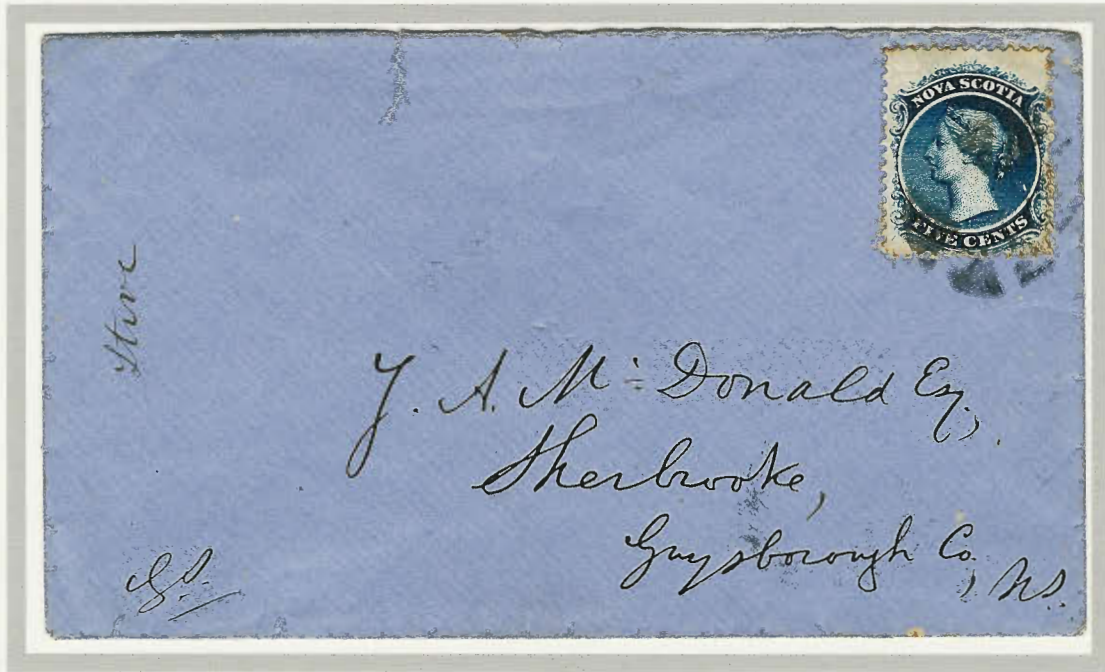 NOVA SCOTIA
FIVE CENTS
J. A. Mc Donald Esq.,
Sherbrooke,
Guysborough Co.
, N.S.